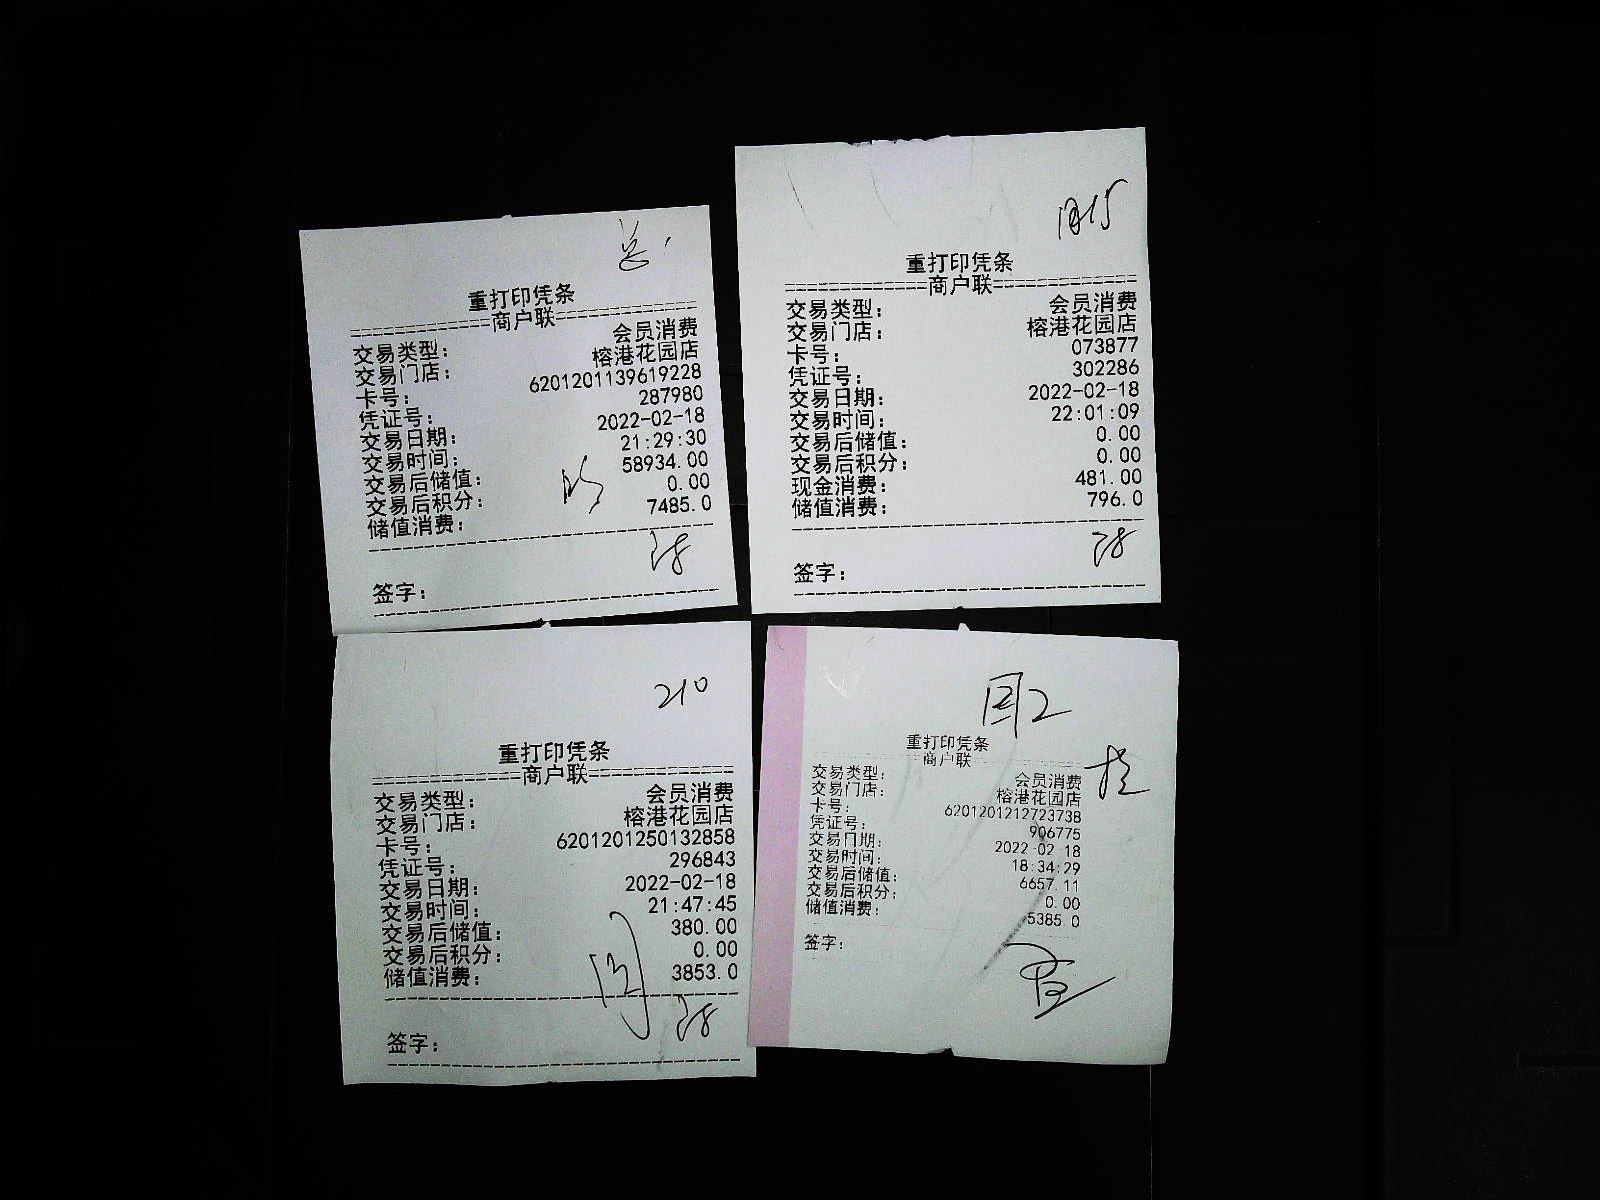 重打印凭条
==========商户联==========
交易类型： 会员消费
交易门店： 榕港花园店
卡号： 6201201139619228
凭证号： 287980
交易日期： 2022-02-18
交易时间： 21:29:30
交易后储值： 58934.00
交易后积分： 0.00
储值消费： 7485.0
签字：
重打印凭条
==========商户联==========
交易类型： 会员消费
交易门店： 榕港花园店
卡号： 073877
凭证号： 302286
交易日期： 2022-02-18
交易时间： 22:01:09
交易后储值： 0.00
交易后积分： 0.00
现金消费： 481.00
储值消费： 796.0
签字：
210
重打印凭条
==========商户联==========
交易类型： 会员消费
交易门店： 榕港花园店
卡号： 6201201250132858
凭证号： 296843
交易日期： 2022-02-18
交易时间： 21:47:45
交易后储值： 380.00
交易后积分： 0.00
储值消费： 3853.0
签字：
重打印凭条
商户联
交易类型： 会员消费
交易门店： 榕港花园店
卡号： 6201201212723738
凭证号： 906775
交易日期： 2022-02-18
交易时间： 18:34:29
交易后储值： 6657.11
交易后积分： 0.00
储值消费： 5385.0
签字：